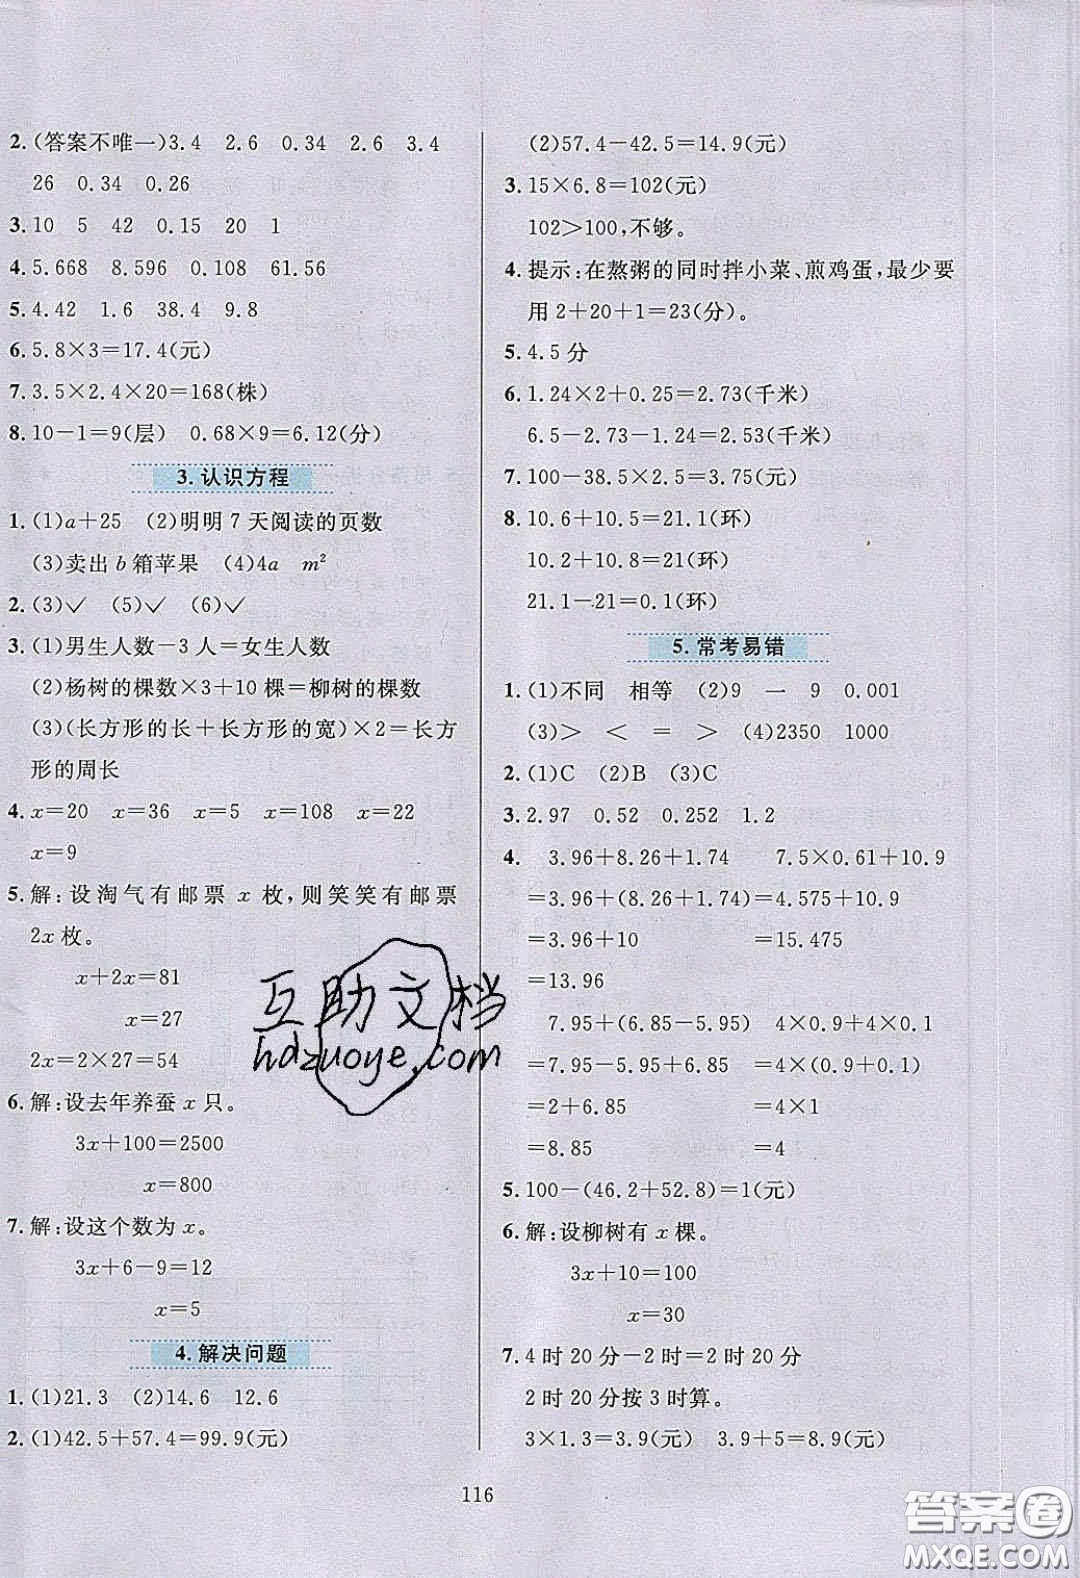 2. (答案不唯一)3.4 2.6 0.34 2.6 3.4
26 0.34 0.26
3. 10 5 42 0.15 20 1
4. 5.668 8.596 0.108 61.56
5. 4.42 1.6 38.4 9.8
6. 5.8×3=17.4(元)
7. 3.5×2.4×20=168(株)
8. 10-1=9(层) 0.68×9=6.12(分)
3. 认识方程
1. (1)a+25 (2)明明7天阅读的页数
(3)卖出b箱苹果 (4)4a m²
2. (3)✓ (5)✓ (6)✓
3. (1)男生人数-3人=女生人数
(2)杨树的棵数×3+10棵=柳树的棵数
(3)(长方形的长+长方形的宽)×2=长方
形的周长
4. x=20 x=36 x=5 x=108 x=22
x=9
5. 解:设淘气有邮票x枚,则笑笑有邮票
2x枚。
x+2x=81
x=27
2x=2×27=54
6. 解:设去年养蚕x只。
3x+100=2500
x=800
7. 解:设这个数为x。
3x+6-9=12
x=5
4. 解决问题
1. (1)21.3 (2)14.6 12.6
2. (1)42.5+57.4=99.9(元)
(2)57.4-42.5=14.9(元)
3. 15×6.8=102(元)
102>100,不够。
4. 提示:在熬粥的同时拌小菜、煎鸡蛋,最少要
用2+20+1=23(分)。
5. 4.5分
6. 1.24×2+0.25=2.73(千米)
6.5-2.73-1.24=2.53(千米)
7. 100-38.5×2.5=3.75(元)
8. 10.6+10.5=21.1(环)
10.2+10.8=21(环)
21.1-21=0.1(环)
5. 常考易错
1. (1)不同 相等 (2)9 一 9 0.001
(3)> < = > (4)2350 1000
2. (1)C (2)B (3)C
3. 2.97 0.52 0.252 1.2
4. 3.96+8.26+1.74 7.5×0.61+10.9
=3.96+(8.26+1.74) =4.575+10.9
=3.96+10 =15.475
=13.96
7.95+(6.85-5.95) 4×0.9+4×0.1
=7.95-5.95+6.85 =4×(0.9+0.1)
=2+6.85 =4×1
=8.85 =4
5. 100-(46.2+52.8)=1(元)
6. 解:设柳树有x棵。
3x+10=100
x=30
7. 4时20分-2时=2时20分
2时20分按3时算。
3×1.3=3.9(元) 3.9+5=8.9(元)
116
互助文档
hdzuoye.com
答案圈
MXQE.COM